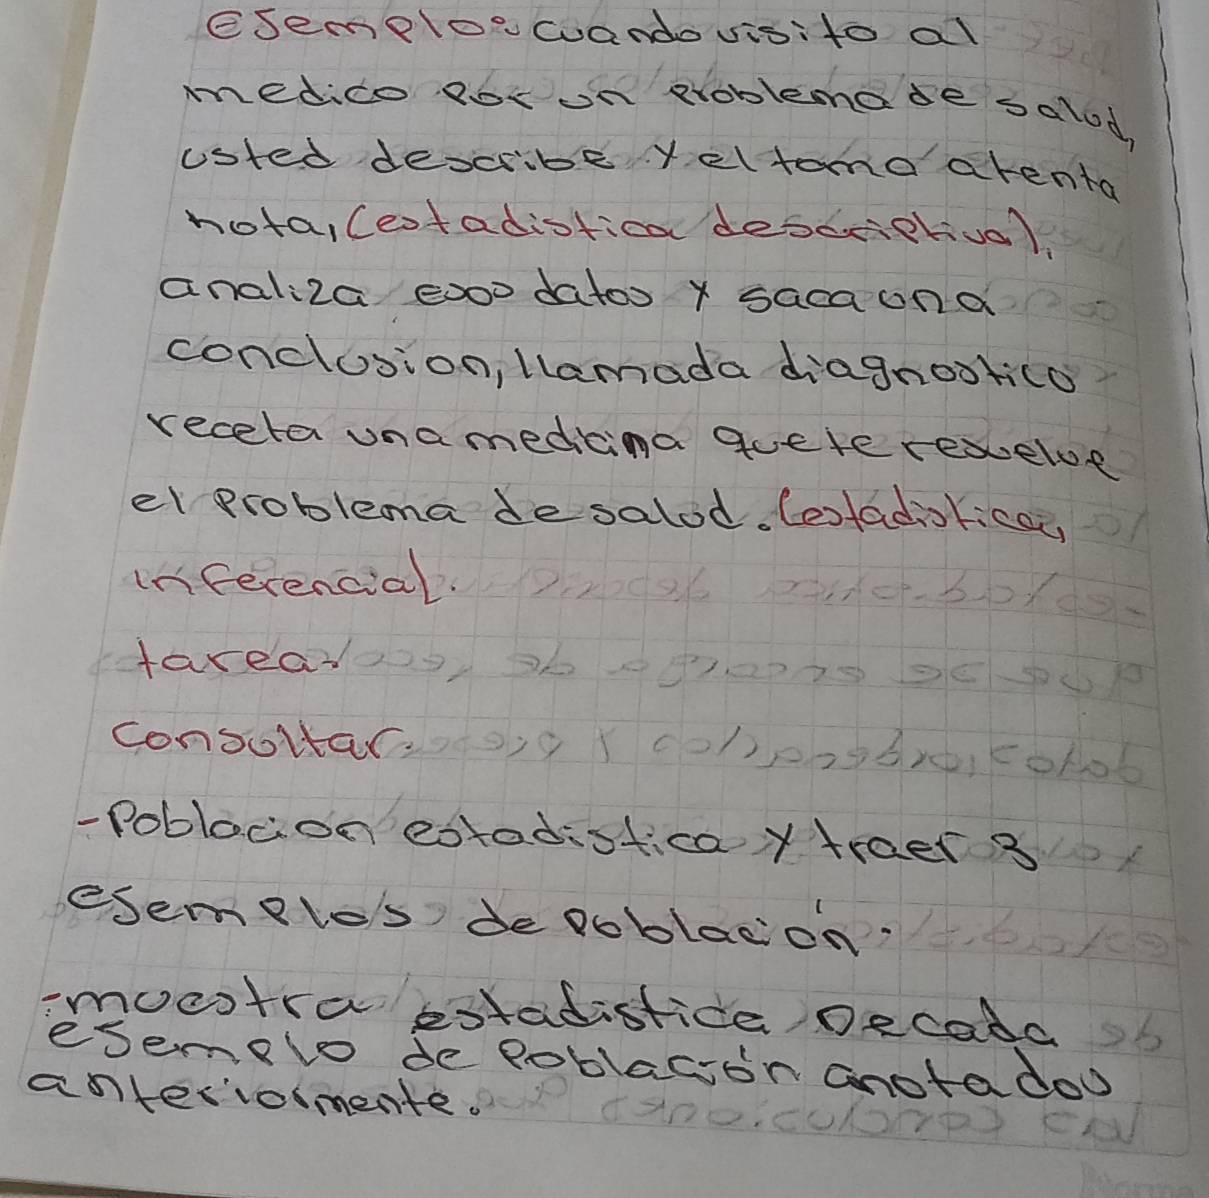 eJemplo: cuando visito al
medico por un problema de salud,
usted describe y el toma atenta
nota, (estadistica descriptiva),
analiza esos datos y saca una
conclusion, llamada diagnostico
receta una medicina que te resuelve
el problema de salud. (estadistica,
inferencial.
tarea:
consultar:
-Poblacion estadistica y traer 3
eJemplos de población.
-muestra estadistica De cada
eJemplo de población anotados
anteriormente.